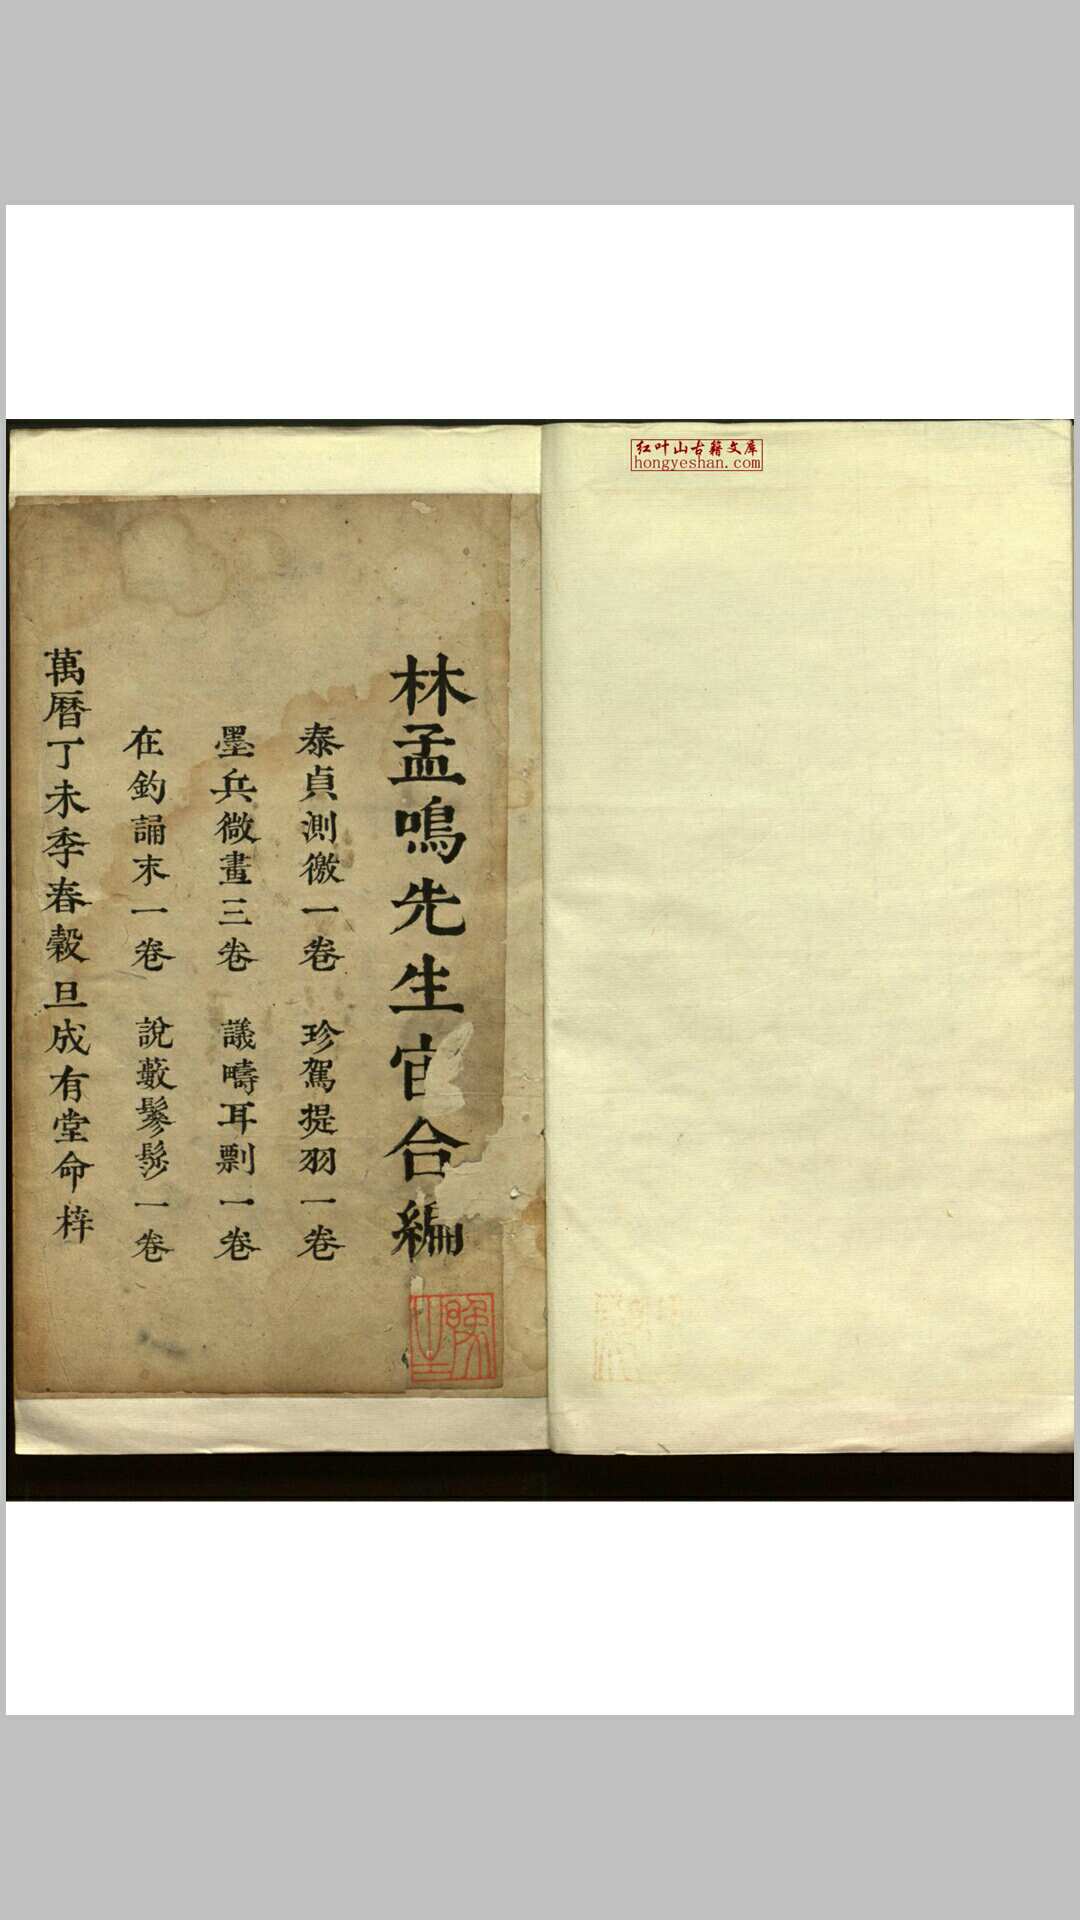 红叶山古籍文库
hongyeshan.com
林孟鳴先生官合編
泰貞測徼一卷 珍駕提羽一卷
墨兵微畫三卷 議疇耳剽一卷
在釣誦末一卷 說藪鬖髿一卷
萬曆丁未季春穀旦成有堂命梓